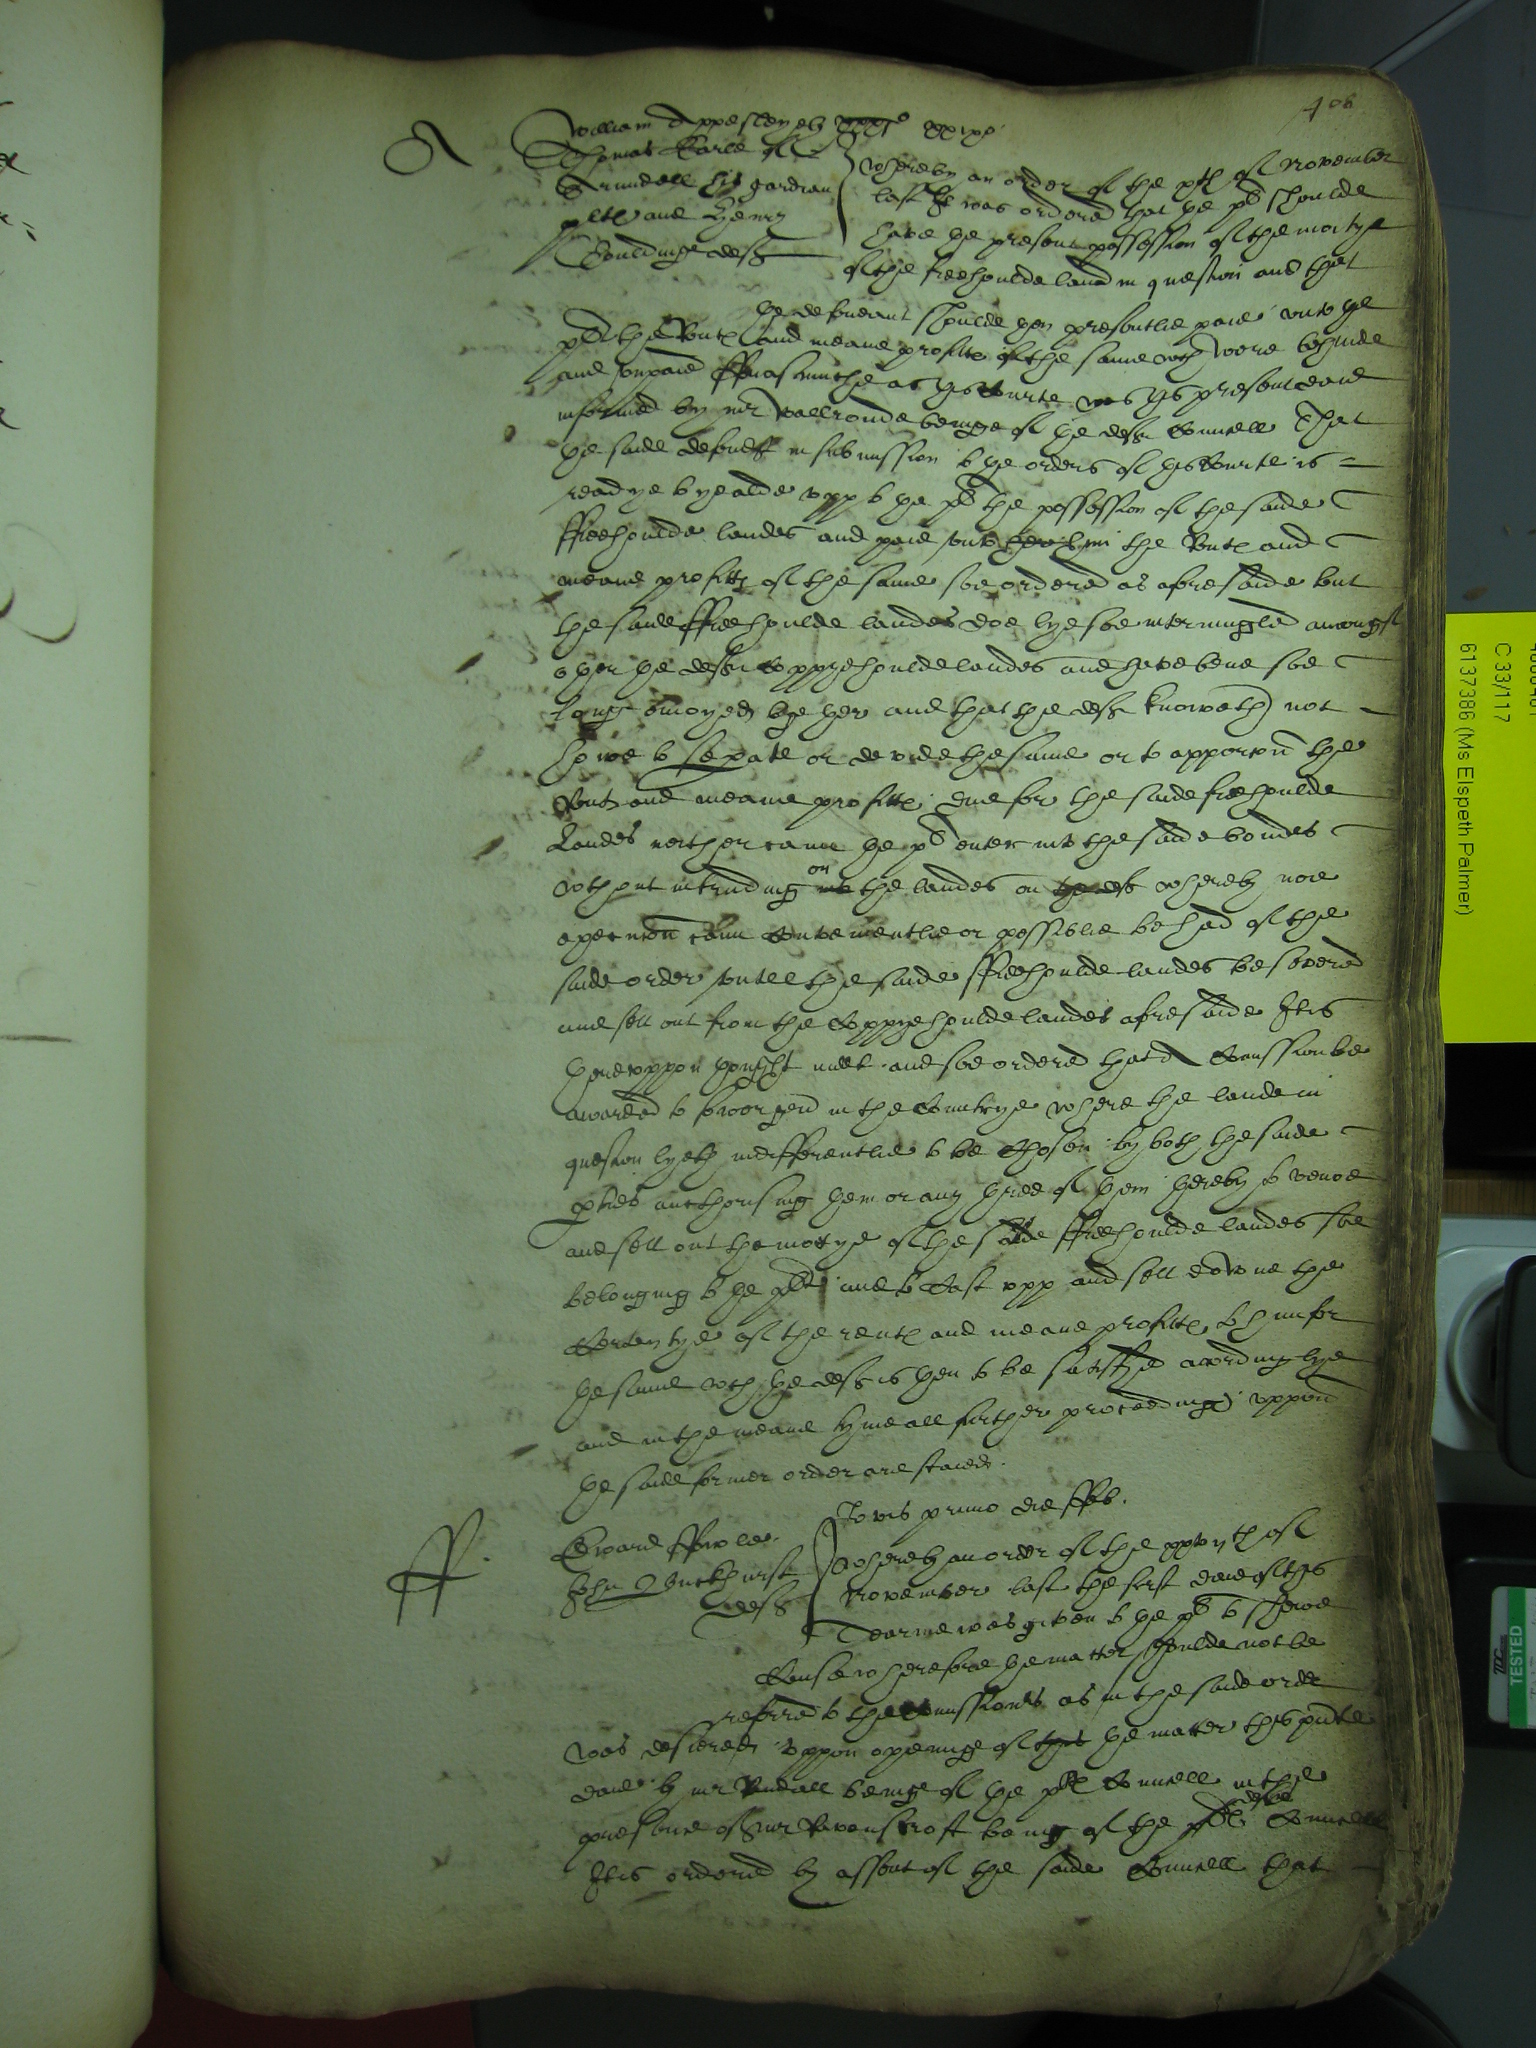 408
A
William Appesley by
Thomas Earle of
Arundell his gardian
plte and Henry
Gouldinge deft
Whereby an order of the xth of November
last It was ordered that the pl shoulde
have the present possession of the moitye
of the freehoulde land in question and that
the defendant shoulde then presentlie paie unto the
pl the Rente and meane profitte of the same wch were behinde
and unpaid fforasmuche as this Courte was this present daie
informed by mr Wallronde beinge of the deft Councell That
the saide defendt in submission to the orders of this Courte is
readye to yealde upp to the pl the possession of the saide
ffreehoulde landes and paie unto him the Rente and
meane profitte of the same soe ordered as aforesaide but
the saide ffreehoulde landes doe lye soe intermingled amongst
other the deft Coppyehoulde landes and have bene soe
longe enioyed and that the deft knoweth not
howe to sepate or devide the same or to apporcon the
Rente and meane profitte due for the saide freehoulde
Landes neither cann the pl enter into the saide landes
without intruding on the landes of whereby noe
execucon cann Conveinentlie or possiblie be had of the
saide order untill the saide ffreehoulde landes be severed
and sett out from the Coppyehoulde landes aforesaide It is
thereuppon thought meete and soe ordered that a Comission be
awarded to in the Countrye where the lande in
question lyeth indifferentlie to be Chosen by both the saide
pties aucthorising them or any three of them thereby to
and sett out the moitye of the saide ffreehoulde landes soe
belonging to the plt and to Cast upp and sett downe the
Certentye of the rente and meane profitte to him for
the same wch the deft is then to be satisfyed accordinglye
and in the meane tyme all further proceedinge uppon
the saide former order are staied
Jovis primo die ffeb.
ff
Edward ffowler
John
deft
Whereby an order of the xxvijth of
November last the first daie of this
Tearme was given to the pl to shewe
Cause wherefore the matter shoulde not be
referred to the Comissioners as in the saide order
was desiered uppon openinge of the matter this pnte
daie by mr Randall beinge of the plte Councell in the
presence of mr Ravenscroft being of the defte Councell
It is ordered by assent of the saide Councell that
C 33/117
6137386 (Ms Elspeth Palmer)
TESTED